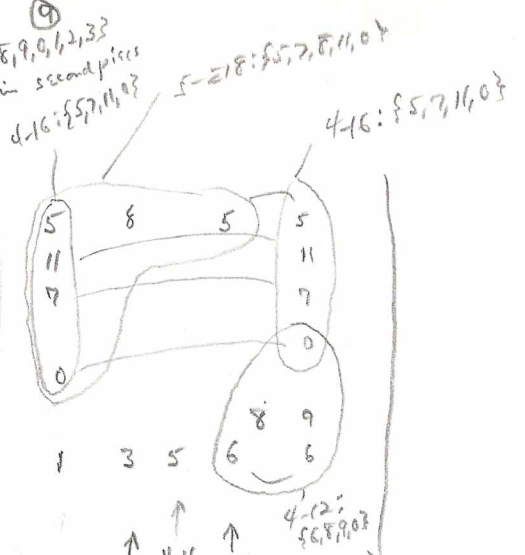 9
8,9,0,1,2,3}
in second piece
4-16:{5,7,11,0}
5-Z18:{5,7,8,11,0}
4-16:{5,7,11,0}
5 8 5 5
11 11
7 7
0 0
8 9
1 3 5 6 6
4-12:
{6,8,9,0}